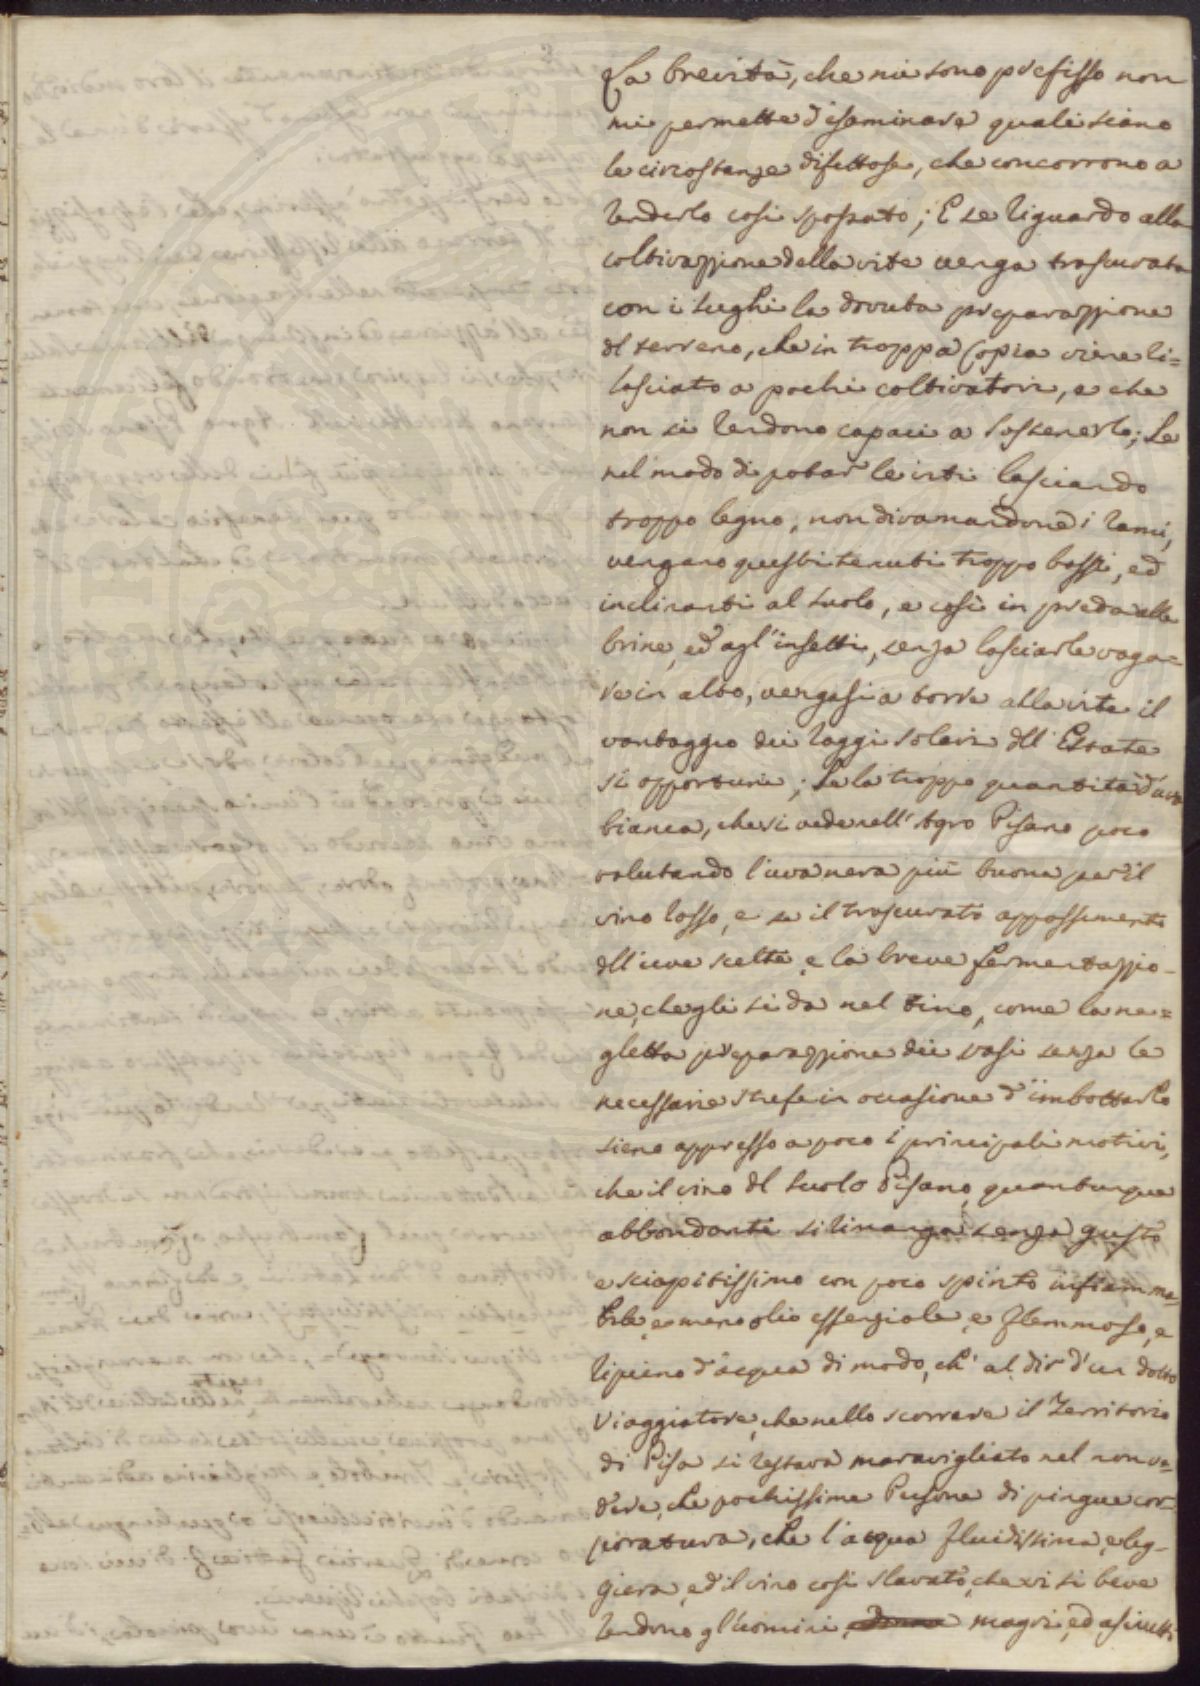 La brevità, che mi sono prefisso non
mi permette d'esaminare quali siano
le circostanze difettose, che concorrono a
renderlo così spossato; E se riguardo alla
coltivazzione della vite venga trascurata
con i lughi la dovuta preparazzione
del terreno, che in troppa Copia viene ri=
lasciato a pochi coltivatori, e che
non si rendono capaci a sostenerlo; Se
nel modo di potar le viti lasciando
troppo legno, non diramandone i rami,
vengano questi tenuti troppo bassi, ed
inclinanti al suolo, e così in preda alle
brine, ed agl'insetti, senza lasciarle vaga=
re in alto, vengasi a torre alla vite il
vantaggio dei raggi solari dell'Estate
sì opportuni; Se la troppa quantità d'uva
bianca, che si vede nell'Agro Pisano poco
valutando l'uva nera più buona per il
vino rosso, e se il trascurato appassimento
dell'uve scelte, e la breve fermentazzio-
ne, che gli si da nel tino, come la ne=
gletta preparazzione dei vasi senza le
necessarie stufe in occasione d'imbottarlo
sieno appresso a poco i principali motivi,
che il vino del suolo Pisano, quantunque
abbondante si rimanga senza gusto
e sciapitissimo con poco spirito infiamma-
bile, e meno olio essenziale, e flemmoso, e
ripieno d'acqua di modo, ch'al dir d'un dotto
Viaggiatore, che nello scorrere il Territorio
di Pisa si restava maravigliato nel non ve-
dere, che pochissime Persone di pingue cor-
poratura, che l'acqua fluidissima, e leg-
giera, ed il vino così slavato, che vi si beve
rendono gl'uomini magri, ed asciutti